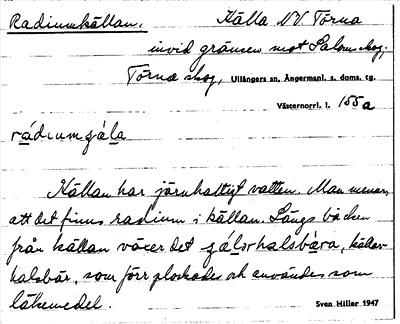 Radiumkällan. Källa NV Torna
invid gränsen mot Salom skog,
Torna skog, Ullångers sn, Ångermanl. s. doms. tg.
Västernorrl. l. 155a
rádiumgála
Källan har järnhaltigt vatten. Man menar,
att det finns radium i källan. Längs bäcken
från källan växer det gálorhalsbära, källar-
halsbär, som förr plockades och användes som
läkemedel. Sven Hiller 1947